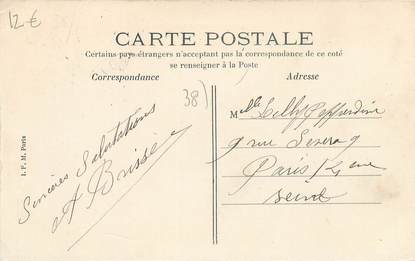 12€
CARTE POSTALE
Certains pays étrangers n'acceptant pas la correspondance de ce coté
se renseigner à la Poste
Correspondance
Adresse
38)
Sincères Salutations
A Brisse
I. P. M. Paris
Mlle Lilly
9 rue
Paris 14 eme
Seine